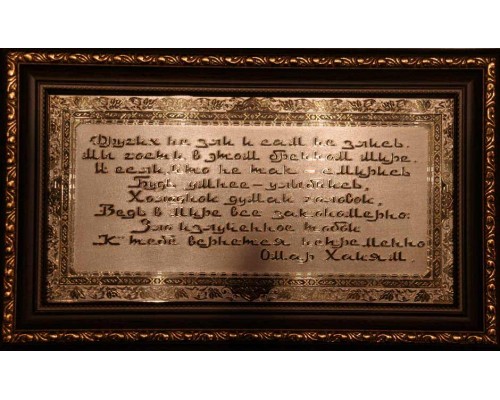 Других не зли и сам не злись.
Мы гости в этом бренном мире.
И если, что не так - смирись
Будь умнее - улыбнись,
Холодной думай головой,
Ведь в мире все закономерно:
Зло излученное тобой
К тебе вернется непременно
Омар Хаям.